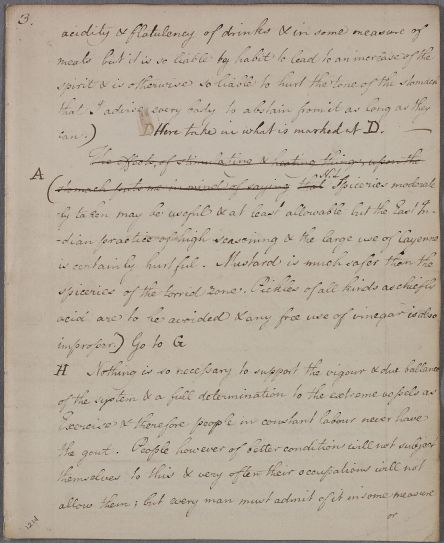 3.
acidity & flatulency of drinks & in some measure of
meals but it is so liable by habit to lead to an increase of the
spirit & is otherwise so liable to hurt the tone of the stomach
that I advise every body to abstain from it as long as they
can.) D Here take in what is marked at D.
The effects of stimulating & heating things upon the
A (stomach puts me in mind of saying that N.1 Spiceries moderate
ly taken may be useful & at least allowable but the East In-
dian practice of high seasoning & the large use of Cayenne
is certainly hurtful. Mustard is much safer than the
spiceries of the torrid zone. Pickles of all kinds as chiefly
acid are to be avoided & any free use of vinegar is also
improper.) Go to G
H Nothing is so necessary to support the vigour & due ballance
of the system & a full determination to the extreme vessels as
Exercise & therefore people in constant labour never have
the gout. People however of better condition will not subject
themselves to this & very often their occupations will not
allow them; but every man must admit of it in some measure
or